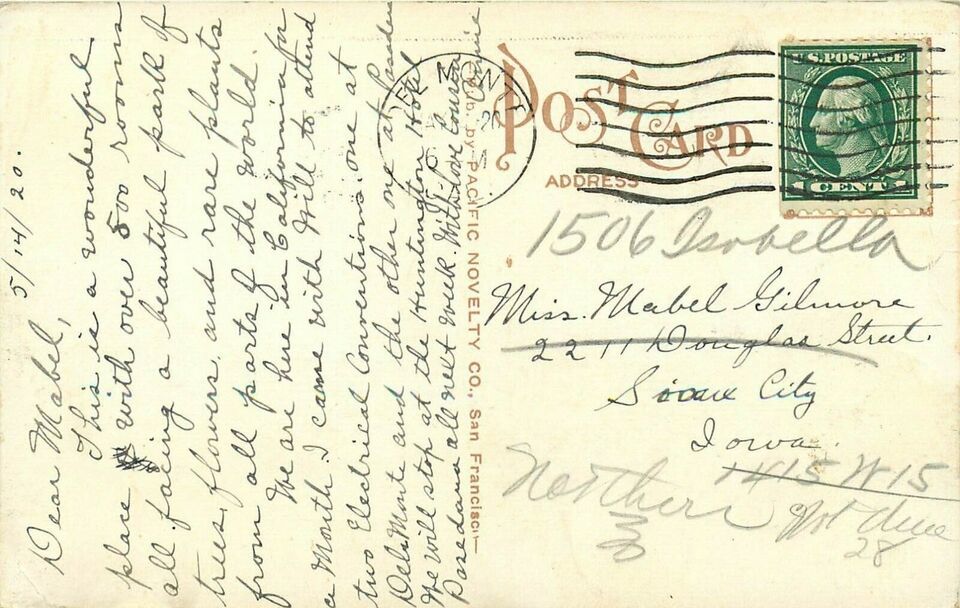 5/14/20.
Dear Mabel,
This is a wonderful
place with over 500 rooms
all facing a beautiful park of
trees, flowers, and rare plants
from all parts of the world.
We are here in California for
a Month. I came with Will to attend
two Electrical Conventions, one at
Del Monte and the other one at Pasadena
We will stop at the Huntington Hotel
Pasadena all next week. With love Cousin
Pub. by PACIFIC NOVELTY CO., San Francisco
POST CARD
ADDRESS
DEL MONTE
U.S. POSTAGE
1 CENT 1
1506 Isabella
Miss. Mabel Gilmore
2211 Douglas Street.
Sioux City
Iowa.
1415 W 15
28